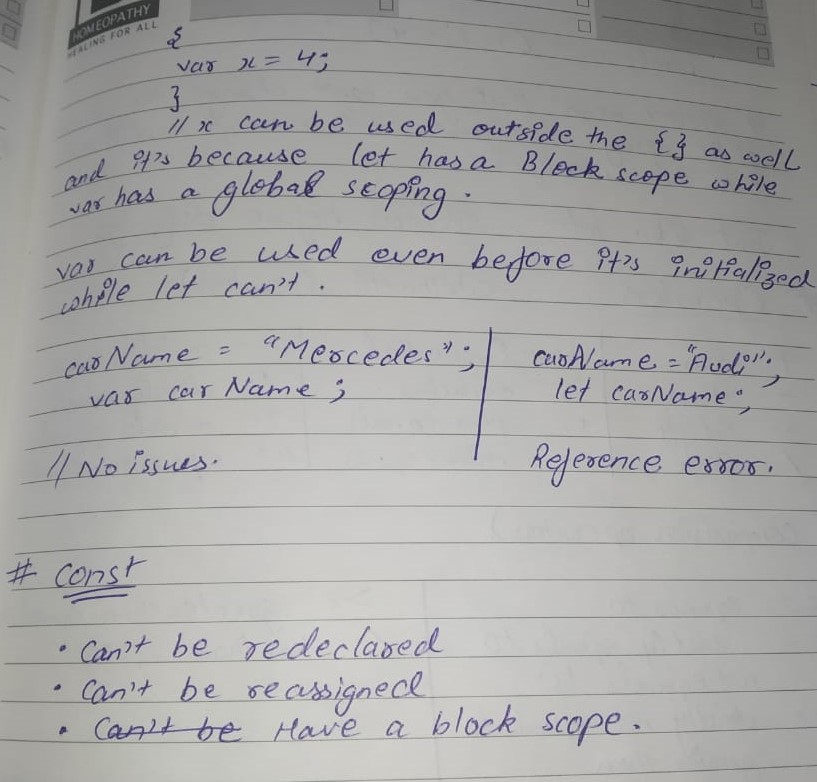 HOMEOPATHY
HEALING FOR ALL
{
var x = 4;
}
// x can be used outside the {} as well
and it's because let has a Block scope while
var has a global scoping.
var can be used even before it's initialized
while let can't.
carName = "Mercedes"; | carName = "Audi";
var carName; | let carName;
// No issues. | Reference error.
# const
• Can't be redeclared
• Can't be reassigned
• Can't be Have a block scope.